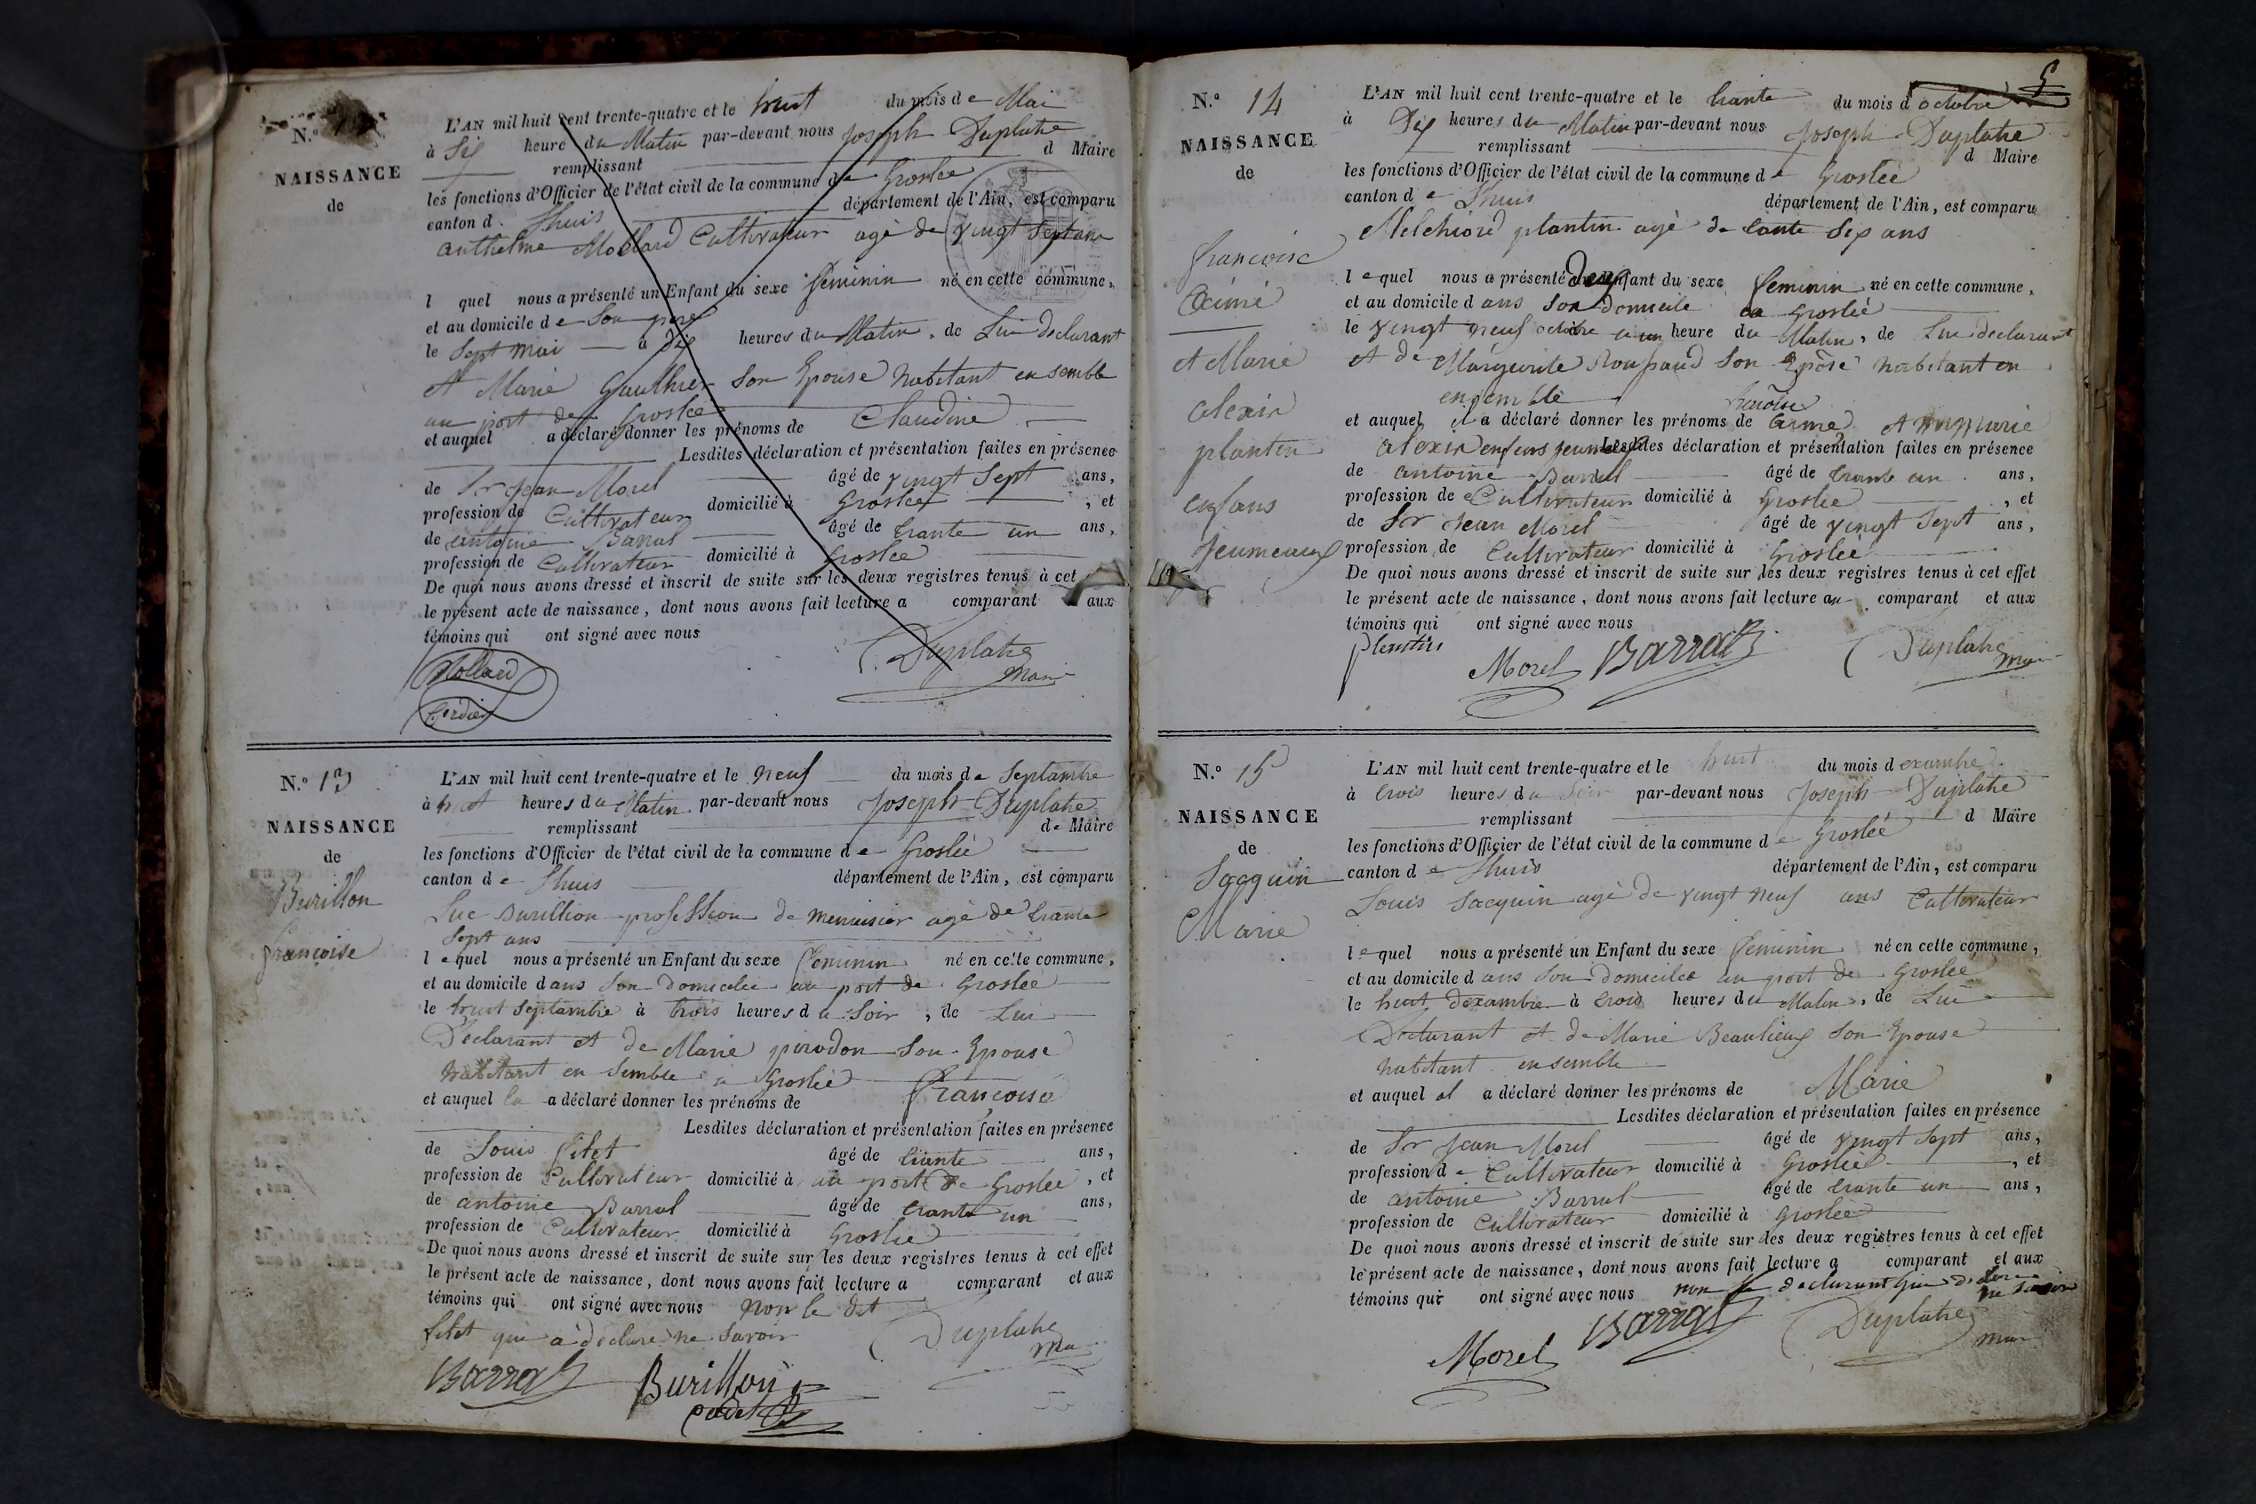 N.º
NAISSANCE
de
L'AN mil huit cent trente-quatre et le huit du mois de Mai
à Six heure du Matin par-devant nous Joseph Duplatre
remplissant d Maire
les fonctions d'Officier de l'état civil de la commune de Groslée
canton d Lhuis département de l'Ain, est comparu
Anthelme Mollard Cultivateur agé de vingt Sept ans
l quel nous a présenté un Enfant du sexe féminin né en cette commune,
et au domicile de Son père
le Sept mai à Dix heures du Matin, de Lui declarant
et Marie Gaulthier Son Epouse habitant en semble
au port de Groslée
et auquel a déclaré donner les prénoms de Claudine
Lesdites déclaration et présentation faites en présence
de Sr Jean Morel âgé de vingt Sept ans,
profession de Cultivateur domicilié à Groslée, et
de antoine Barral âgé de trante un ans,
profession de Cultivateur domicilié à Groslée
De quoi nous avons dressé et inscrit de suite sur les deux registres tenus à cet
le présent acte de naissance, dont nous avons fait lecture a comparant aux
témoins qui ont signé avec nous
Mollard
Duplatre
Maire
N.º 13
NAISSANCE
de
Burillon
françoise
L'AN mil huit cent trente-quatre et le neuf du mois de Septambre
à huit heures du Matin par-devant nous Joseph Duplatre
remplissant de Maire
les fonctions d'Officier de l'état civil de la commune de Groslée
canton de Lhuis département de l'Ain, est comparu
Luc Burillion profession de menuisier agé de trante
Sept ans
lequel nous a présenté un Enfant du sexe feminin né en cette commune,
et au domicile dans Son Domicilee au port de Groslée
le huit Septambre à trois heures du Soir, de Lui
Déclarant et de Marie pirodon Son Epouse
habitant en Semble a Groslée
et auquel la a déclaré donner les prénoms de françoise
Lesdites déclaration et présentation faites en présence
de Louis filet âgé de trante ans,
profession de Cultivateur domicilié à au port de Groslée, et
de antoine Barral âgé de trante un ans,
profession de Cultivateur domicilié à Groslée
De quoi nous avons dressé et inscrit de suite sur les deux registres tenus à cet effet
le présent acte de naissance, dont nous avons fait lecture a comparant et aux
témoins qui ont signé avec nous non le dit
filet qui a déclaré ne Savoir
Duplatre
Barral Burillon
cadet
5
N.º 14
NAISSANCE
de
françoise
Eximé
et Marie
alexin
plantin
enfans
Jeumeaux
L'AN mil huit cent trente-quatre et le trante du mois d octobre
à Dix heures du Matin par-devant nous Joseph Duplatre
remplissant d Maire
les fonctions d'Officier de l'état civil de la commune de Groslée
canton de Lhuis département de l'Ain, est comparu
Melchiord plantin agé de tante Six ans
lequel nous a présenté Deux Enfant du sexe feminin né en cette commune,
et au domicile dans Son Domicile a Groslée
le vingt neuf octobre a un heure du Matin, de Lui declarant
et de Marguerite Son Epose habitant en
ensemble
et auquel il a déclaré donner les prénoms de et marie
alexin enfans jeumeaux Lesdites déclaration et présentation faites en présence
de antoine Barral âgé de trante un ans,
profession de Cultivateur domicilié à Groslée, et
de Sr Jean Morel âgé de vingt Sept ans,
profession de Cultivateur domicilié à Groslée
De quoi nous avons dressé et inscrit de suite sur les deux registres tenus à cet effet
le présent acte de naissance, dont nous avons fait lecture au comparant et aux
témoins qui ont signé avec nous
plantin
Morel Barral Duplatre
N.º 15
NAISSANCE
de
Jacquin
Marie
L'AN mil huit cent trente-quatre et le huit du mois dexambre
à trois heures du Soir par-devant nous Joseph Duplatre
remplissant d Maire
les fonctions d'Officier de l'état civil de la commune de Groslée
canton de Lhuis département de l'Ain, est comparu
Louis Jacquin agé de vingt neuf ans Cultivateur
lequel nous a présenté un Enfant du sexe feminin né en cette commune,
et au domicile dans Son Domicilee au port de Groslée
le huit dexambre à trois heures du Matin, de Lui
Declarant et de Marie Beaulieux Son Epouse
habitant ensemble
et auquel al a déclaré donner les prénoms de Marie
Lesdites déclaration et présentation faites en présence
de Sr Jean Morel âgé de vingt Sept ans,
profession de Cultivateur domicilié à Groslée, et
de antoine Barral âgé de trante un ans,
profession de Cultivateur domicilié à Groslée
De quoi nous avons dressé et inscrit de suite sur les deux registres tenus à cet effet
le présent acte de naissance, dont nous avons fait lecture a comparant et aux
témoins qui ont signé avec nous non le declarant qui declare
ne savoir
Morel Barral Duplatre